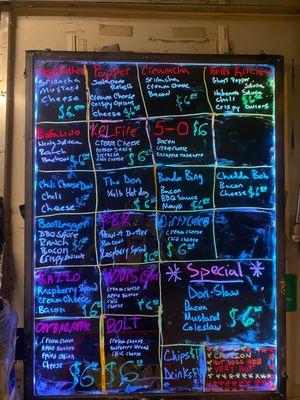 Popper
Jalapeno
Relish
Cream Cheese
Crispy Onions
Cheese
$6
Sriracha
Mustard
Cheese
$6
Creamcha
Sriracha
Cream Cheese
Bacon
$6
Hells Kitchen
Ghost Pepper
Salsa
Habanero Salsa
Chili
Crispy Onions
$6
Buffalino
Wing Sauce
Ranch
Bacon
$6
Cream Cheese
Chili Cheese
$6
5-0 $6
Bacon
Cream Cheese
Chili Cheese Dog
Chili
Cheese
$6
The Don
1/4 lb Hot dog
$6
Bada Bing
Bacon
BBQ Sauce
Mayo
$6
Chedda Bob
Bacon
Cheese
$6
Bootlegger
BBQ Sauce
Ranch
Bacon
Crispy Onions
$6
PB&R
Peanut Butter
Bacon
Raspberry Spread
$6
Dirty Caleb
Cream Cheese
Chili Cheese
$6
Razzo
Raspberry Spread
Cream Cheese
Bacon
$6
Cream Cheese
Apple Butter
Chili
$6
* Special *
Don-Slaw
Bacon
Mustard
Coleslaw
$6
Cream Cheese
Apple Butter
Fried Onion
Cheese
$6
BOLT
Cream Cheese
Raspberry Spread
Chili Cheese
$6
Chips $1
Drinks
CAUTION
HOT DOGS ARE
VERY HOT